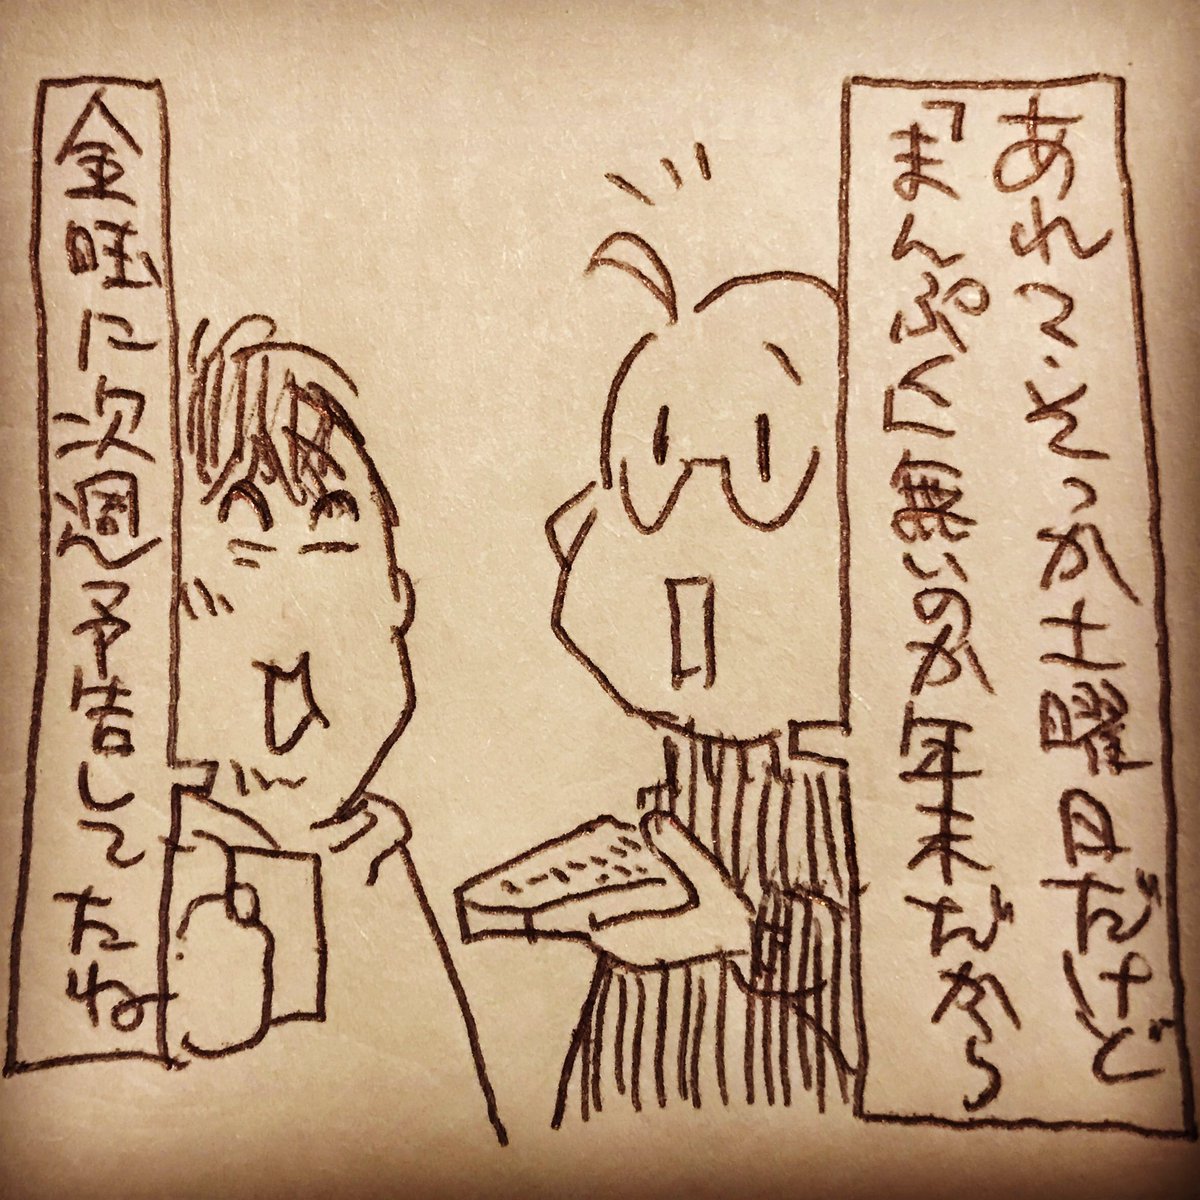 あれっ、そっか土曜日だけど
「まんぷく」無いのか年末だから
金曜に次週予告してたね